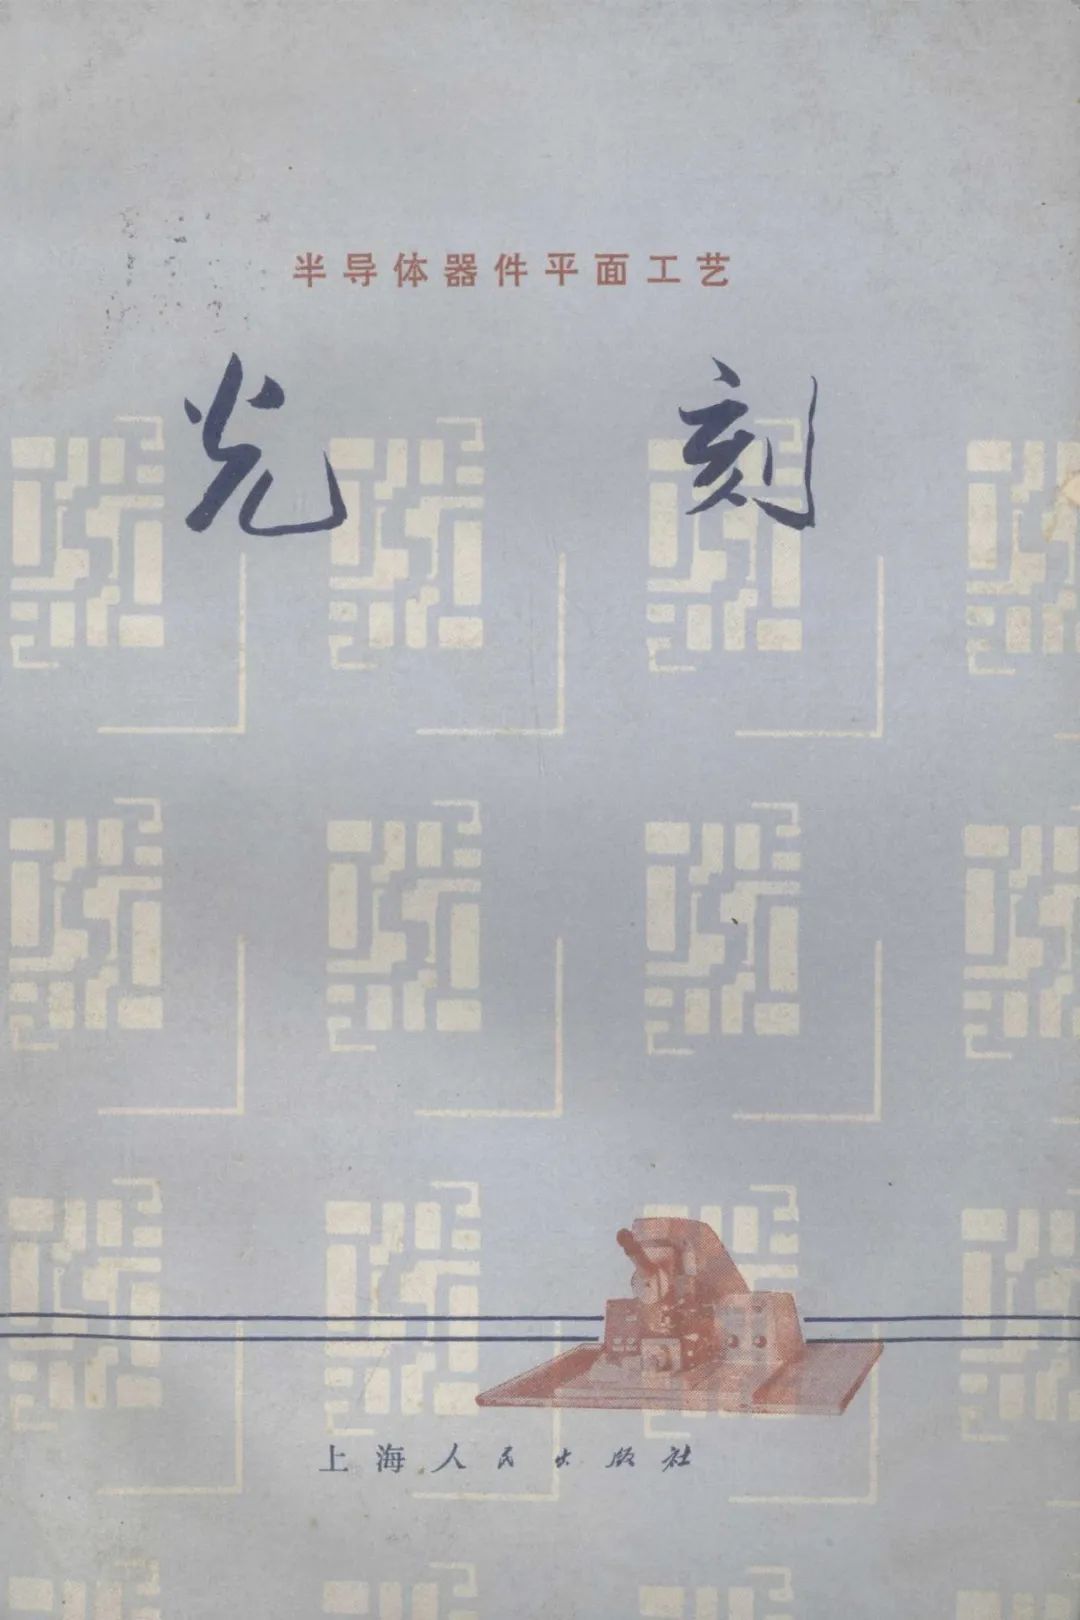 半导体器件平面工艺
光刻
上海人民出版社